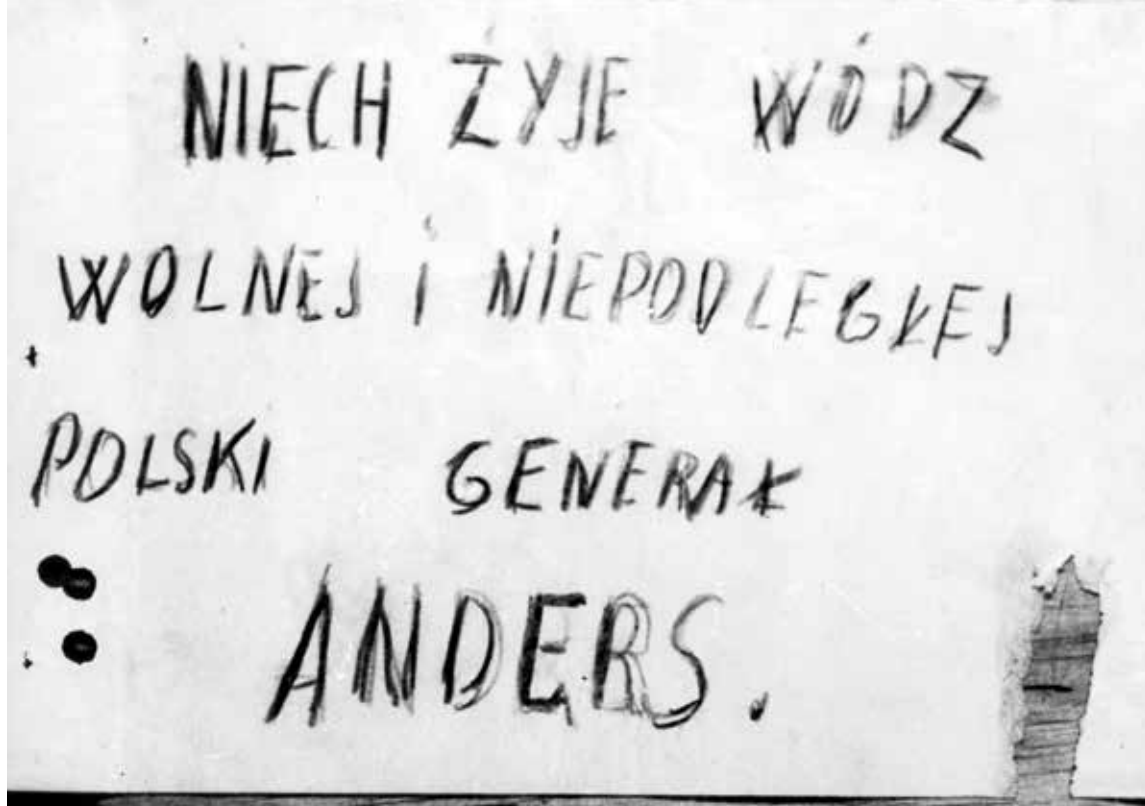 NIECH ŻYJE WÓDZ
WOLNEJ i NiEPODLEGŁEJ
POLSKI GENERAŁ
ANDERS.